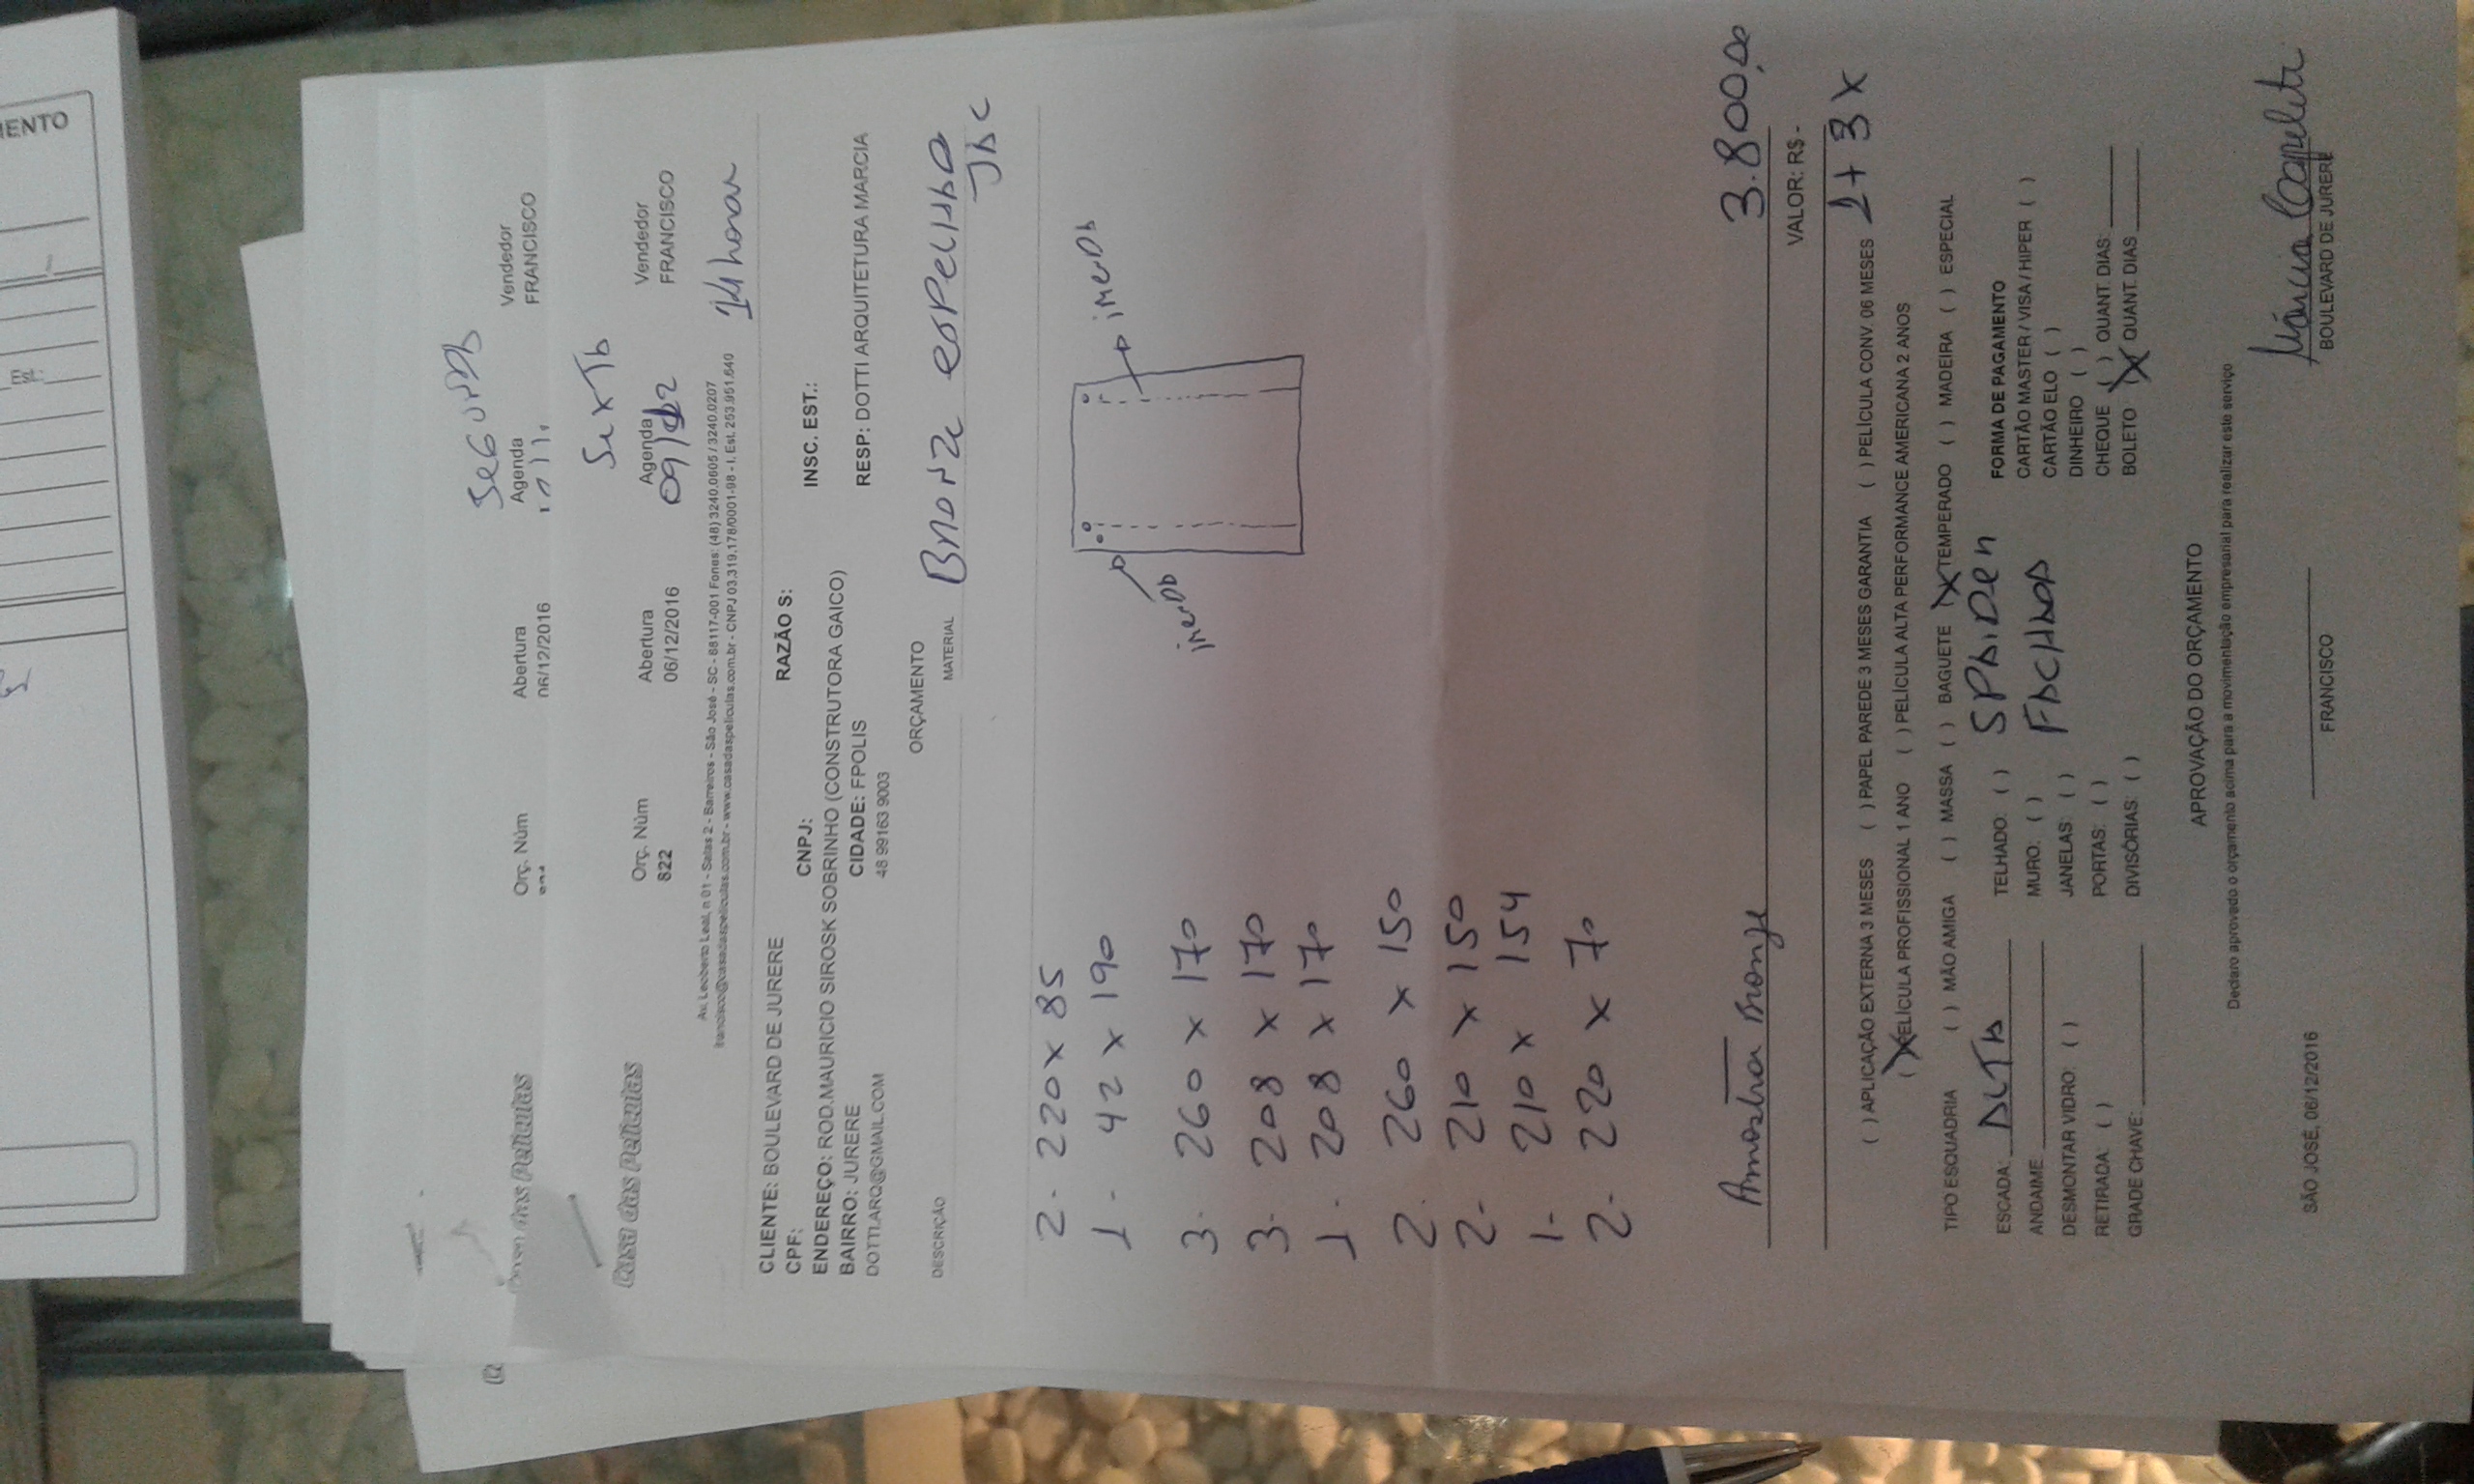 MENTO
SEGUNDA
Orç. Núm Abertura Agenda Vendedor
06/12/2016 FRANCISCO
Casa das Películas
SEXTA
Orç. Núm Abertura Agenda Vendedor
822 06/12/2016 09/12 FRANCISCO
14 horas
Av. Leoberto Leal, n 01 - Salas 2 - Barreiros - São José - SC - 88117-001 Fones: (48) 3240.0605 / 3240.0207
francisco@casadaspeliculas.com.br - www.casadaspeliculas.com.br - CNPJ 03.319.178/0001-98 - I. Est. 253.951.640
CLIENTE: BOULEVARD DE JURERE RAZÃO S:
CPF: CNPJ: INSC. EST.:
ENDEREÇO: ROD.MAURICIO SIROSK SOBRINHO (CONSTRUTORA GAICO)
BAIRRO: JURERE CIDADE: FPOLIS RESP: DOTTI ARQUITETURA MARCIA
DOTTI.ARQ@GMAIL.COM 48 99163 9003
ORÇAMENTO
DESCRIÇÃO MATERIAL Bronze espelhado
2 - 220 x 85
1 - 42 x 190
emenda
emenda
3 - 260 x 170
3 - 208 x 170
1 - 208 x 170
2 - 260 x 150
2 - 210 x 150
1 - 210 x 154
2 - 220 x 70
Amostra Bronze 3.800,00
VALOR: R$ -
1+3X
( ) APLICAÇÃO EXTERNA 3 MESES ( ) PAPEL PAREDE 3 MESES GARANTIA ( ) PELÍCULA CONV. 06 MESES
(X) PELÍCULA PROFISSIONAL 1 ANO ( ) PELÍCULA ALTA PERFORMANCE AMERICANA 2 ANOS
TIPO ESQUADRIA ( ) MÃO AMIGA ( ) MASSA ( ) BAGUETE (X) TEMPERADO ( ) MADEIRA ( ) ESPECIAL
ESCADA: ALTA TELHADO: ( ) SPAIDER FORMA DE PAGAMENTO
ANDAIME MURO: ( ) FACHADA CARTÃO MASTER / VISA / HIPER ( )
DESMONTAR VIDRO: ( ) JANELAS: ( ) CARTÃO ELO ( )
RETIRADA: ( ) PORTAS: ( ) DINHEIRO ( )
GRADE CHAVE: DIVISÓRIAS: ( ) CHEQUE ( ) QUANT. DIAS:
BOLETO (X) QUANT. DIAS
APROVAÇÃO DO ORÇAMENTO
Declaro aprovado o orçamento acima para a movimentação empresarial para realizar este serviço
SÃO JOSÉ, 06/12/2016 FRANCISCO BOULEVARD DE JURERE